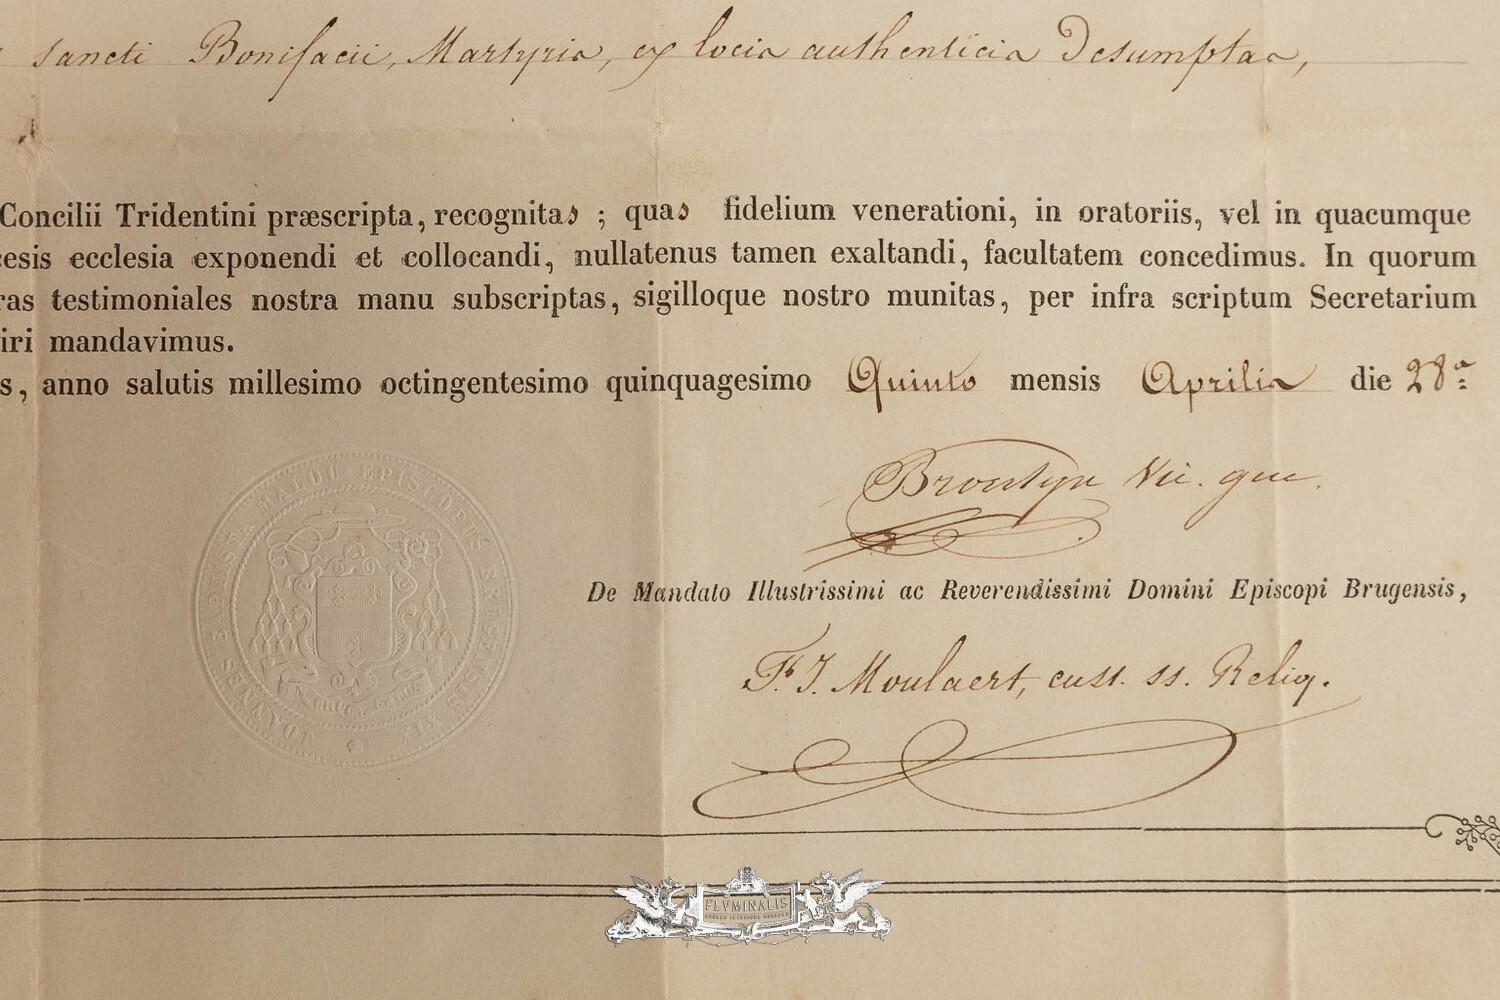 sancti Bonifacii, Martyris, ex locis authenticis Desumptas,
Concilii Tridentini præscripta, recognitas ; quas fidelium venerationi, in oratoriis, vel in quacumque
cesis ecclesia exponendi et collocandi, nullatenus tamen exaltandi, facultatem concedimus. In quorum
ras testimoniales nostra manu subscriptas, sigilloque nostro munitas, per infra scriptum Secretarium
iri mandavimus.
s, anno salutis millesimo octingentesimo quinquagesimo Quinto mensis Aprilis die 28ª
Vic. gen.
De Mandato Illustrissimi ac Reverendissimi Domini Episcopi Brugensis,
F. J. Moulaert, cust. ss. Reliq.
JOANNES BAPTISTA MALOU EPISCOPUS BRUGENSIS
FLVMINALIS